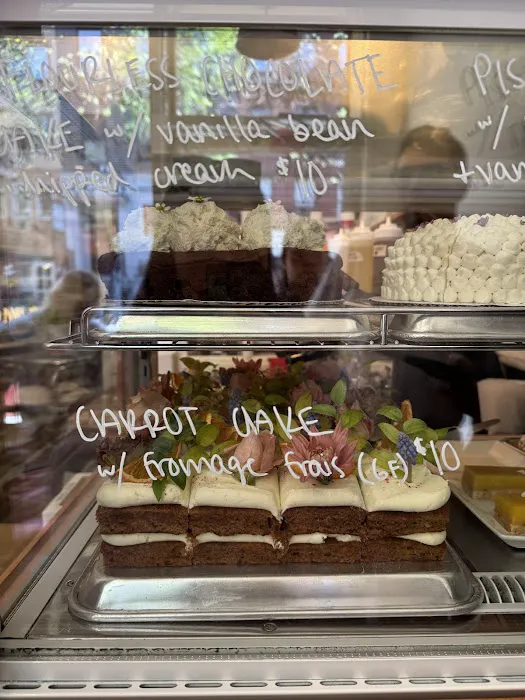 FLOURLESS CHOCOLATE
CAKE w/ vanilla bean
whipped cream $10
PIS
w/
+ van
CARROT CAKE
w/ fromage frais (GF) $10